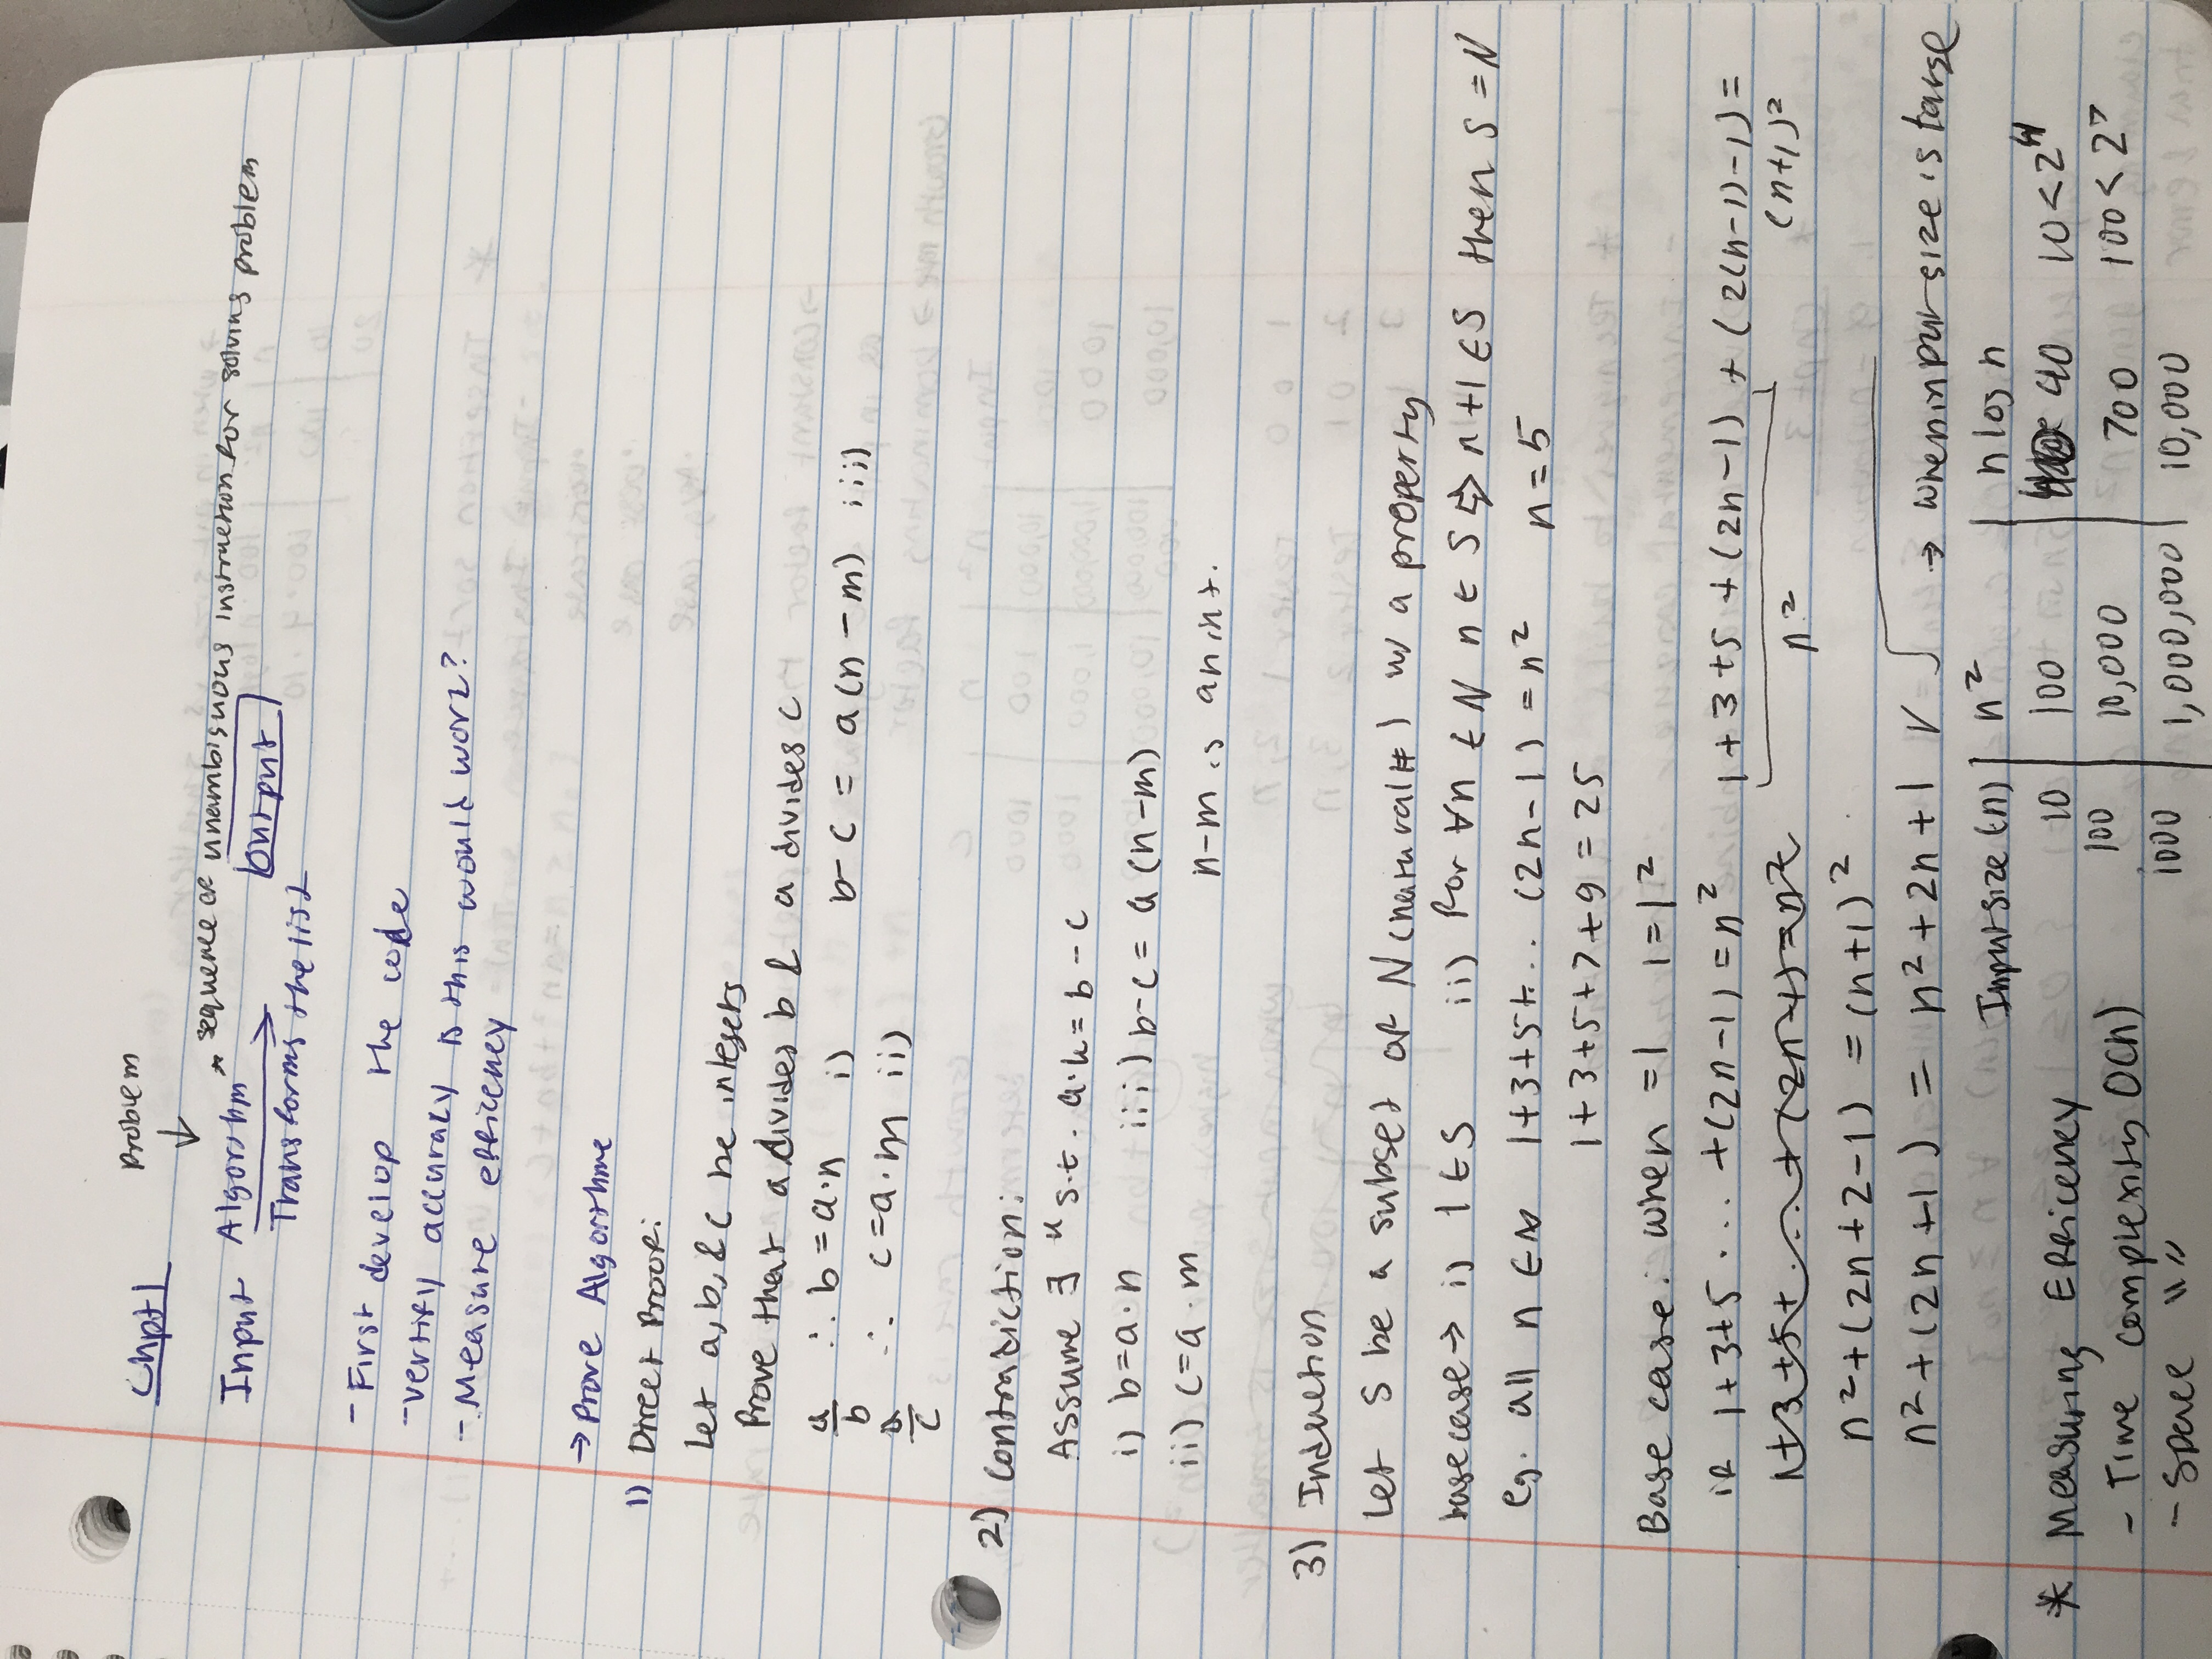 Chpt 1
Problem
↓
Input Algorithm * sequence of unambiguous instruction for solving problem
Transforms the list → Output
- First develop the code
- vertify accuracy is this would work?
- Measure efficency
→ Prove Algorithme
1) Direct Proof:
Let a, b, & c be integers
Prove that a divides b & a divides c
a/b ∴ b = a·n i) b - c = a(n - m) iii)
a/c ∴ c = a·m ii)
2) Contradiction:
Assume ∃ k s.t. a·k = b - c
i) b = a·n iii) b - c = a(n - m)
ii) c = a·m n - m is an int.
3) Induction
Let S be a subset of N (natural #) w/ a property
base case → i) 1 ∈ S ii) for ∀n ∈ N n ∈ S ⇒ n + 1 ∈ S then S = N
eg. all n ∈ N 1 + 3 + 5 + .. (2n - 1) = n² n = 5
1 + 3 + 5 + 7 + 9 = 25
Base case: when = 1 1 = 1²
if 1 + 3 + 5 ... + (2n - 1) = n² 1 + 3 + 5 + (2n - 1) + (2(n - 1) - 1) =
1 + 3 + 5 + ... + (2n + 1) = n² n² (n + 1)²
n² + (2n + 2 - 1) = (n + 1)²
n² + (2n + 1) = n² + 2n + 1 ✓ → when input size is large
Input size (n) | n² | n log n
* Measuring Efficency 10 | 100 | 40 10 < 2⁴
- Time complexity O(n) 100 | 10,000 | 700 100 < 2⁷
- Space " " 1000 | 1,000,000 | 10,000